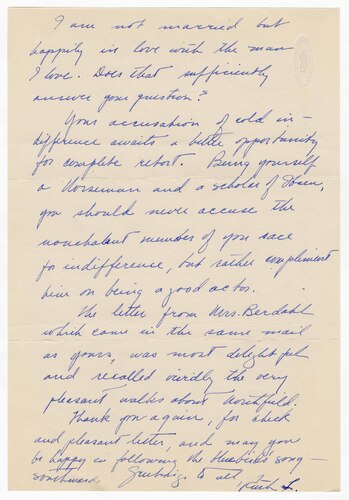 I am not married but
happily in love with the man
I love. Does that sufficiently
answer your question?
Your accusation of cold in-
difference awaits a better opportunity
for complete retort. Being yourself
a Norseman and a scholar of Ibsen,
you should never accuse the
nonchalant member of your race
for indifference, but rather compliment
him on being a good actor.
The letter from Mrs. Berdahl
which came in the same mail
as yours, was most delightful
and recalled vividly the very
pleasant walks about Northfield.
Thank you again, for check
and pleasant letter, and may you
be happy in following the bluebird's song—
southward Greetings to all,
Ruth L.